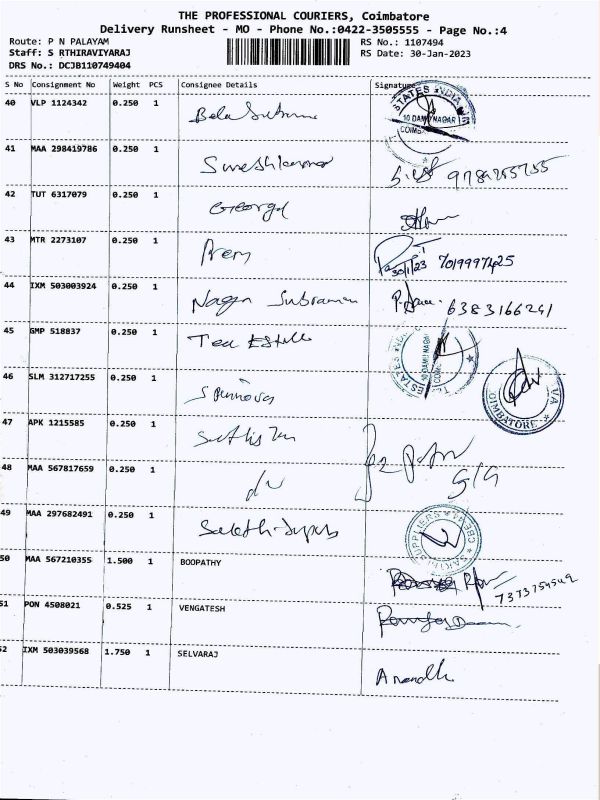 THE PROFESSIONAL COURIERS, Coimbatore
Delivery Runsheet - MO - Phone No.:0422-3505555 - Page No.:4
Route: P N PALAYAM
RS No.: 1107494
Staff: S RTHIRAVIYARAJ
RS Date: 30-Jan-2023
DRS No.: DCJB110749404
S No Consignment No Weight PCS Consignee Details Signature
40 VLP 1124342 0.250 1
STATES INDIA
10 DAMU NAGAR
41 MAA 298419786 0.250 1 Sureshkumar
42 TUT 6317079 0.250 1 George
43 MTR 2273107 0.250 1 Prem 30/1/23
44 IXM 503003924 0.250 1 Nagan Subraman 6383166241
45 GMP 518837 0.250 1 Tea Estate
46 SLM 312717255 0.250 1
COIMBATORE
47 APK 1215585 0.250 1
48 MAA 567817659 0.250 1
49 MAA 297682491 0.250 1
SAKTHI SUPPLIERS
50 MAA 567210355 1.500 1 BOOPATHY 7373754549
51 PON 4508021 0.525 1 VENGATESH
52 IXM 503039568 1.750 1 SELVARAJ Anandh